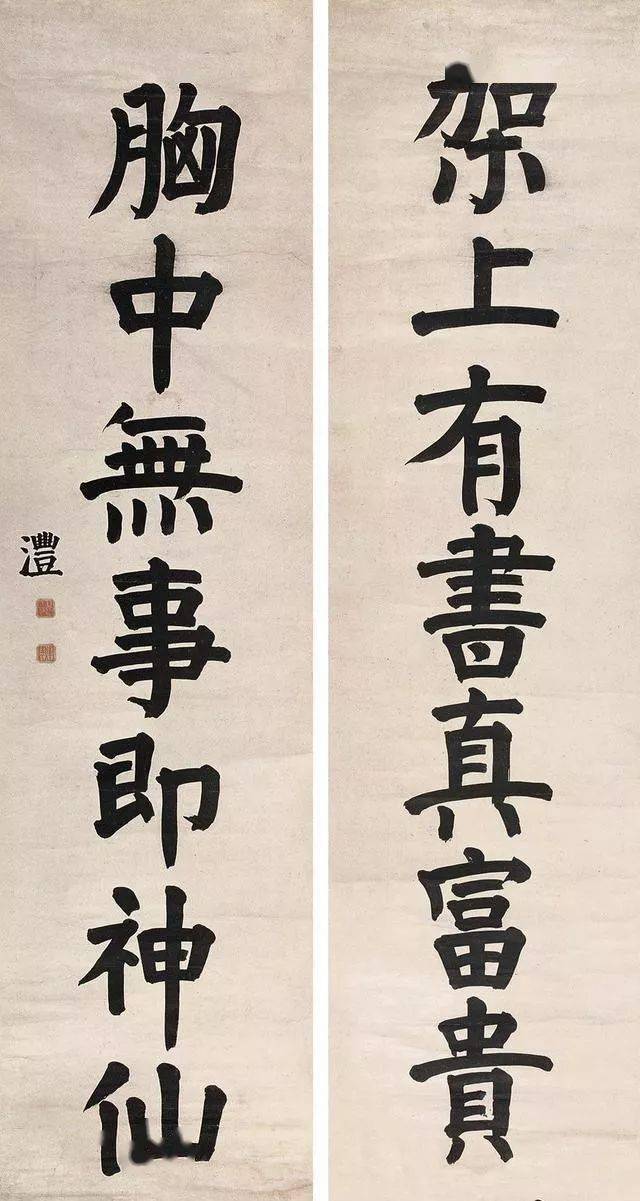 架上有書真富貴
胸中無事即神仙
澧